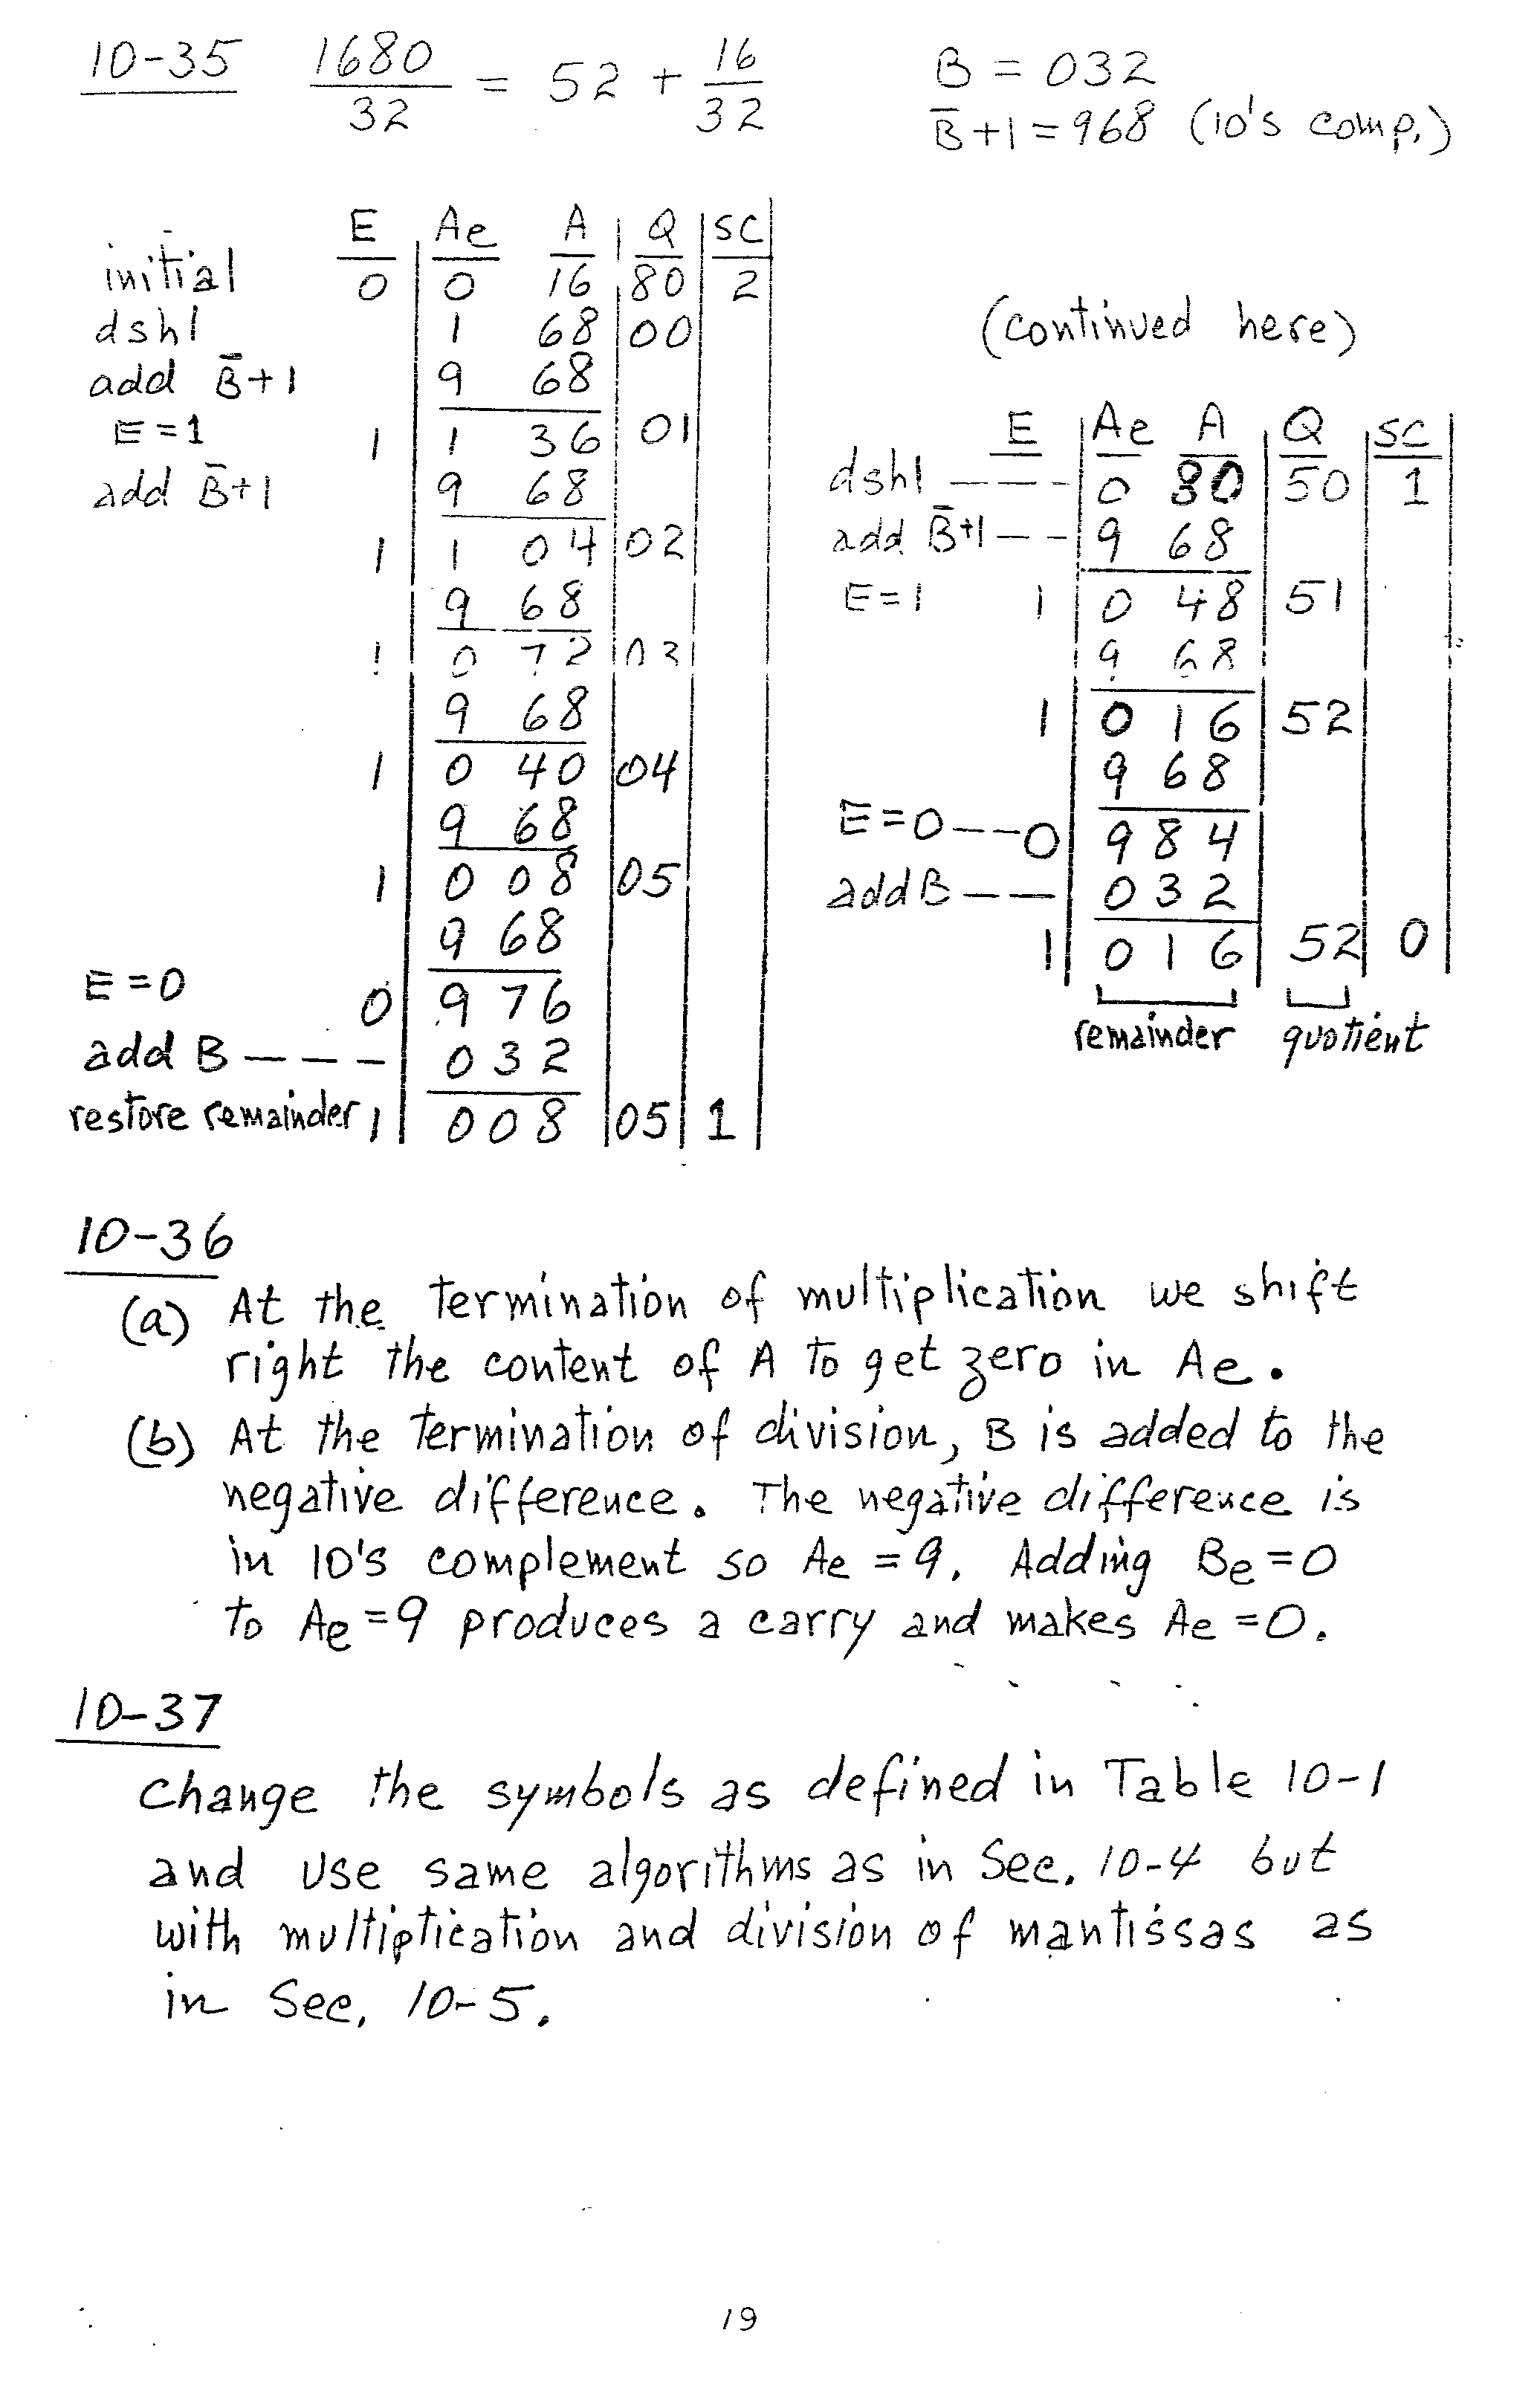 10-35 1680/32 = 52 + 16/32
B = 032
B̅+1 = 968 (10's comp.)
E Ae A Q SC
initial 0 0 16 80 2
dshl 1 68 00
add B̅+1 9 68
E=1 1 1 36 01
add B̅+1 9 68
1 1 04 02
9 68
1 0 72 03
9 68
1 0 40 04
9 68
1 0 08 05
9 68
E=0 0 9 76
add B --- 0 32
restore remainder 1 0 08 05 1
(continued here)
E Ae A Q SC
dshl --- 0 80 50 1
add B̅+1 -- 9 68
E=1 1 0 48 51
9 68
1 0 16 52
9 68
E=0 -- 0 9 84
add B -- 0 32
1 0 16 52 0
remainder quotient
10-36
(a) At the termination of multiplication we shift
right the content of A to get zero in Ae.
(b) At the termination of division, B is added to the
negative difference. The negative difference is
in 10's complement so Ae = 9. Adding Be = 0
to Ae = 9 produces a carry and makes Ae = 0.
10-37
Change the symbols as defined in Table 10-1
and use same algorithms as in Sec. 10-4 but
with multiplication and division of mantissas as
in Sec. 10-5.
19